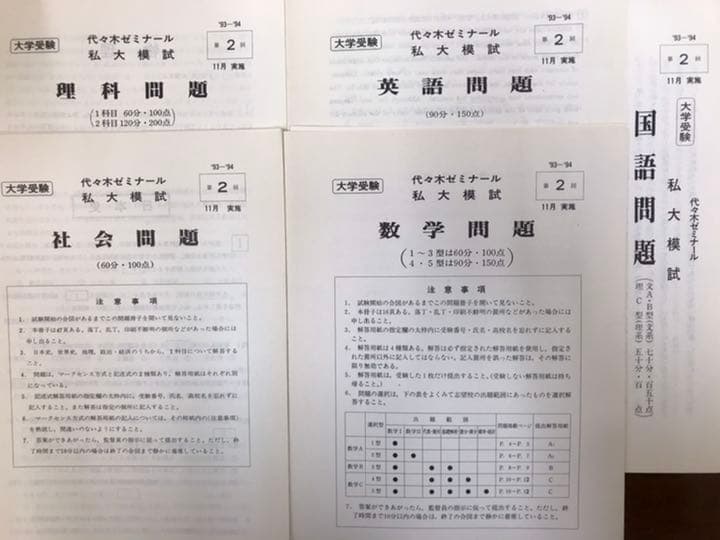 '93-'94
大学受験
代々木ゼミナール
私大模試
第2回
11月 実施
理科問題
(1科目 60分・100点
2科目 120分・200点)
'93-'94
大学受験
代々木ゼミナール
私大模試
第2回
11月 実施
英語問題
(90分・150点)
'93-'94
第2回
11月 実施
大学受験
代々木ゼミナール
私大模試
国語問題
(文A・B型(文系)七十分・百五十点
理・C型(理系)五十分・百点)
'93-'94
大学受験
代々木ゼミナール
私大模試
第2回
11月 実施
社会問題
(60分・100点)
注意事項
1. 試験開始の合図があるまでこの問題冊子を開いて見ないこと。
2. 本冊子は47頁ある。落丁、乱丁、印刷不鮮明の個所などがあった場合には
申し出ること。
3. 日本史、世界史、地理、政治・経済のうちから、1科目について解答するこ
と。
4. 問題は、マークセンス方式と記述式の2種類あり、解答用紙はそれぞれ別
になっている。
5. 記述式解答用紙の指定欄の太枠内に、受験番号、氏名、高校名を忘れずに
記入すること。また解答は指定の個所に記入すること。
6. マークセンス方式の解答用紙の記入については、その用紙内の(注意事項)
を熟読し、間違いのないようにすること。
7. 答案ができあがったら、監督員の指示に従って提出すること。ただし、終
了時間まで10分以内の場合は終了の合図まで静かに着席していること。
'93-'94
大学受験
代々木ゼミナール
私大模試
第2回
11月 実施
数学問題
(1〜3型は60分・100点
4・5型は90分・150点)
注意事項
1. 試験開始の合図があるまでこの問題冊子を開いて見ないこと。
2. 本冊子は16頁ある。落丁、乱丁、印刷不鮮明の個所などがあった場合には
申し出ること。
3. 解答用紙の指定欄の太枠内に受験番号・氏名・高校名を忘れずに記入する
こと。
4. 解答用紙は4種類ある。解答は必ず指定された解答用紙を使用し、指定さ
れた箇所以外に記入してはならない。記入箇所を誤った解答は、その解答に
限り無効である。
5. 解答用紙は、受験した1枚だけ提出すること。(受験しない解答用紙は持ち
帰ること。)
6. 問題の選択は、下の表をよくみて志望校の出題範囲にあったものを選択解
答すること。
選択型 出題範囲 問題掲載ページ 提出解答用紙
数学I 数学II 代数・幾何 基礎解析 微分・積分 確率・統計
数学A 1型 ●
2型 ● ●
数学B 3型 ● ● ● B
数学C 4型 ● ● ● ● C
5型 ● ● ● ● ● C
7. 答案ができあがったら、監督員の指示に従って提出すること。ただし、終
了時間まで10分以内の場合は、終了の合図まで静かに着席していること。